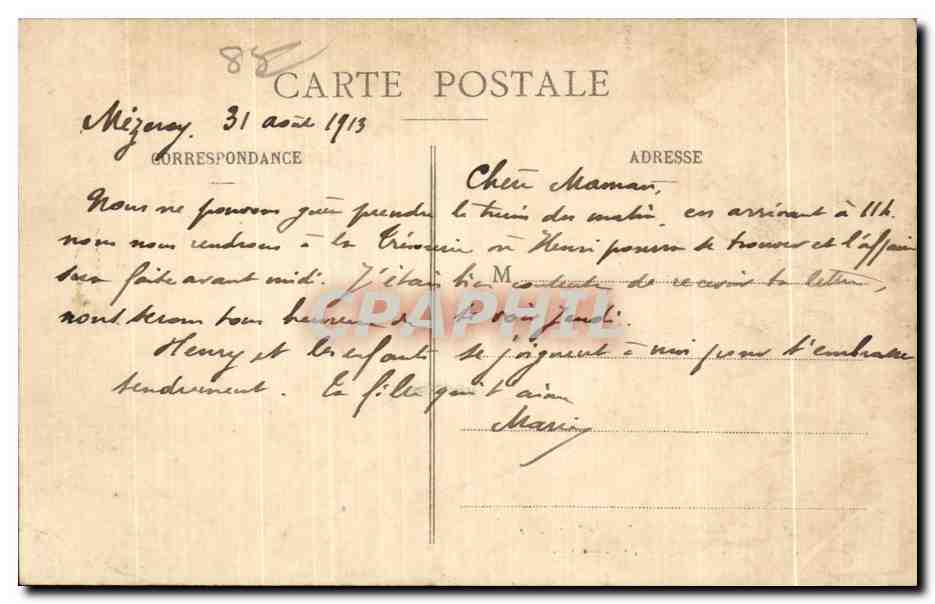 88
CARTE POSTALE
Mézeray, 31 août 1913
CORRESPONDANCE
ADRESSE
Chère Maman,
Nous ne pouvons guère prendre le train du matin, en arrivant à 11h.
nous nous rendrons à la Trésorerie où Henri pourra se trouver et l'affaire
sera faite avant midi. J'étais bien contente de recevoir ta lettre,
M
nous serons tous heureux de te voir Jeudi.
Henry et les enfants se joignent à moi pour t'embrasser
tendrement. Ta fille qui t'aime
CPAPHIL